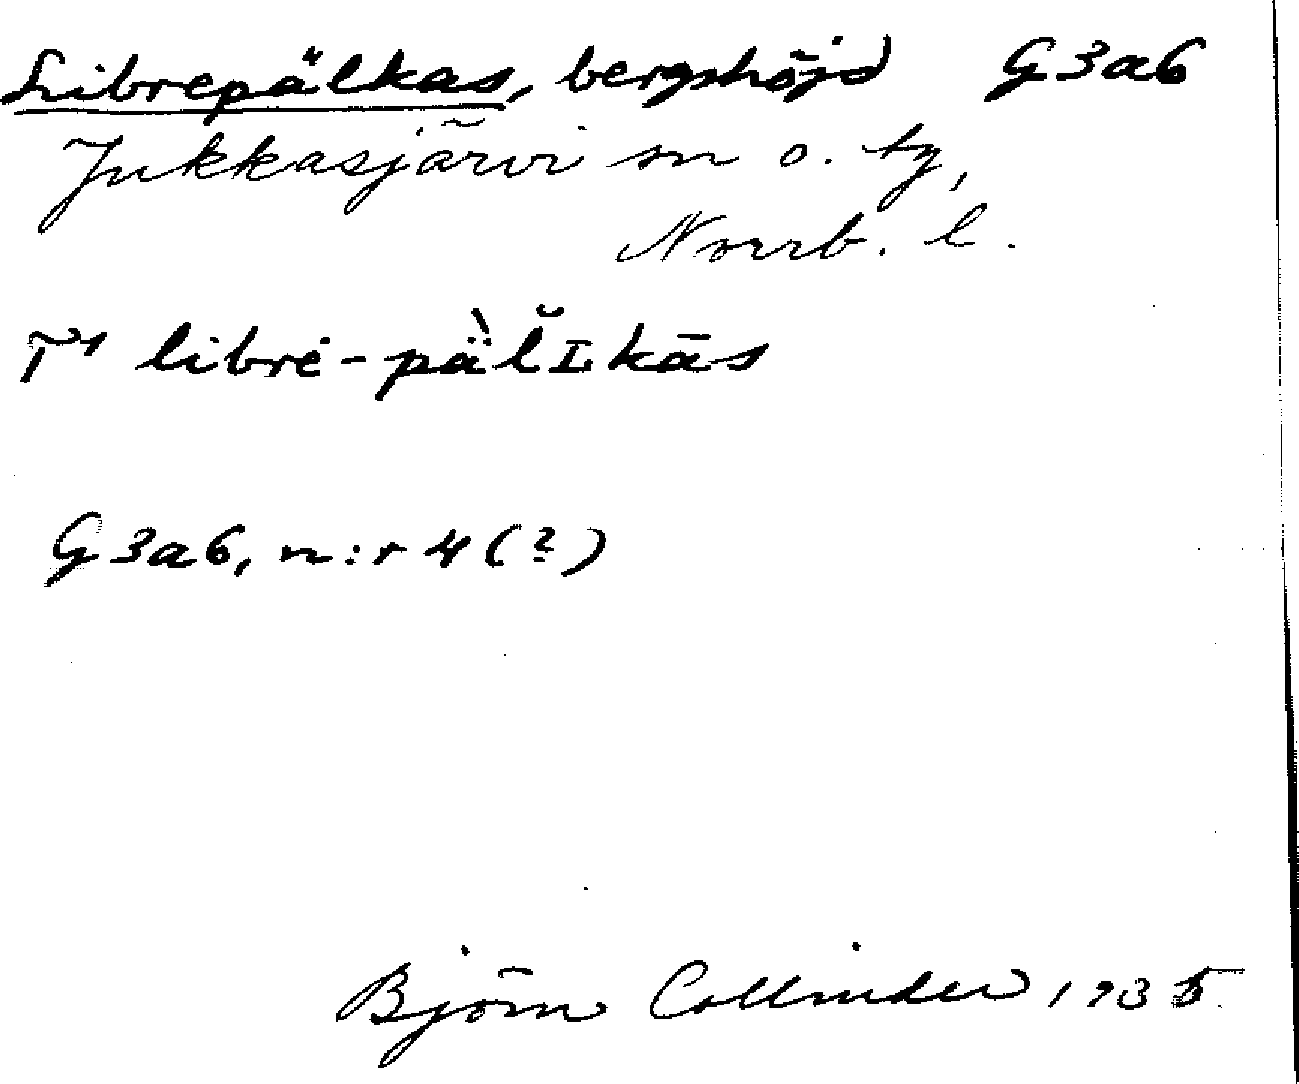 Librepälkas, bergshöjd G3a6
Jukkasjärvi sn o. tg,
Norrb. l.
librė-pä̀lĭʟkās
G3a6, n:r 4 (?)
Björn Collinder 1935